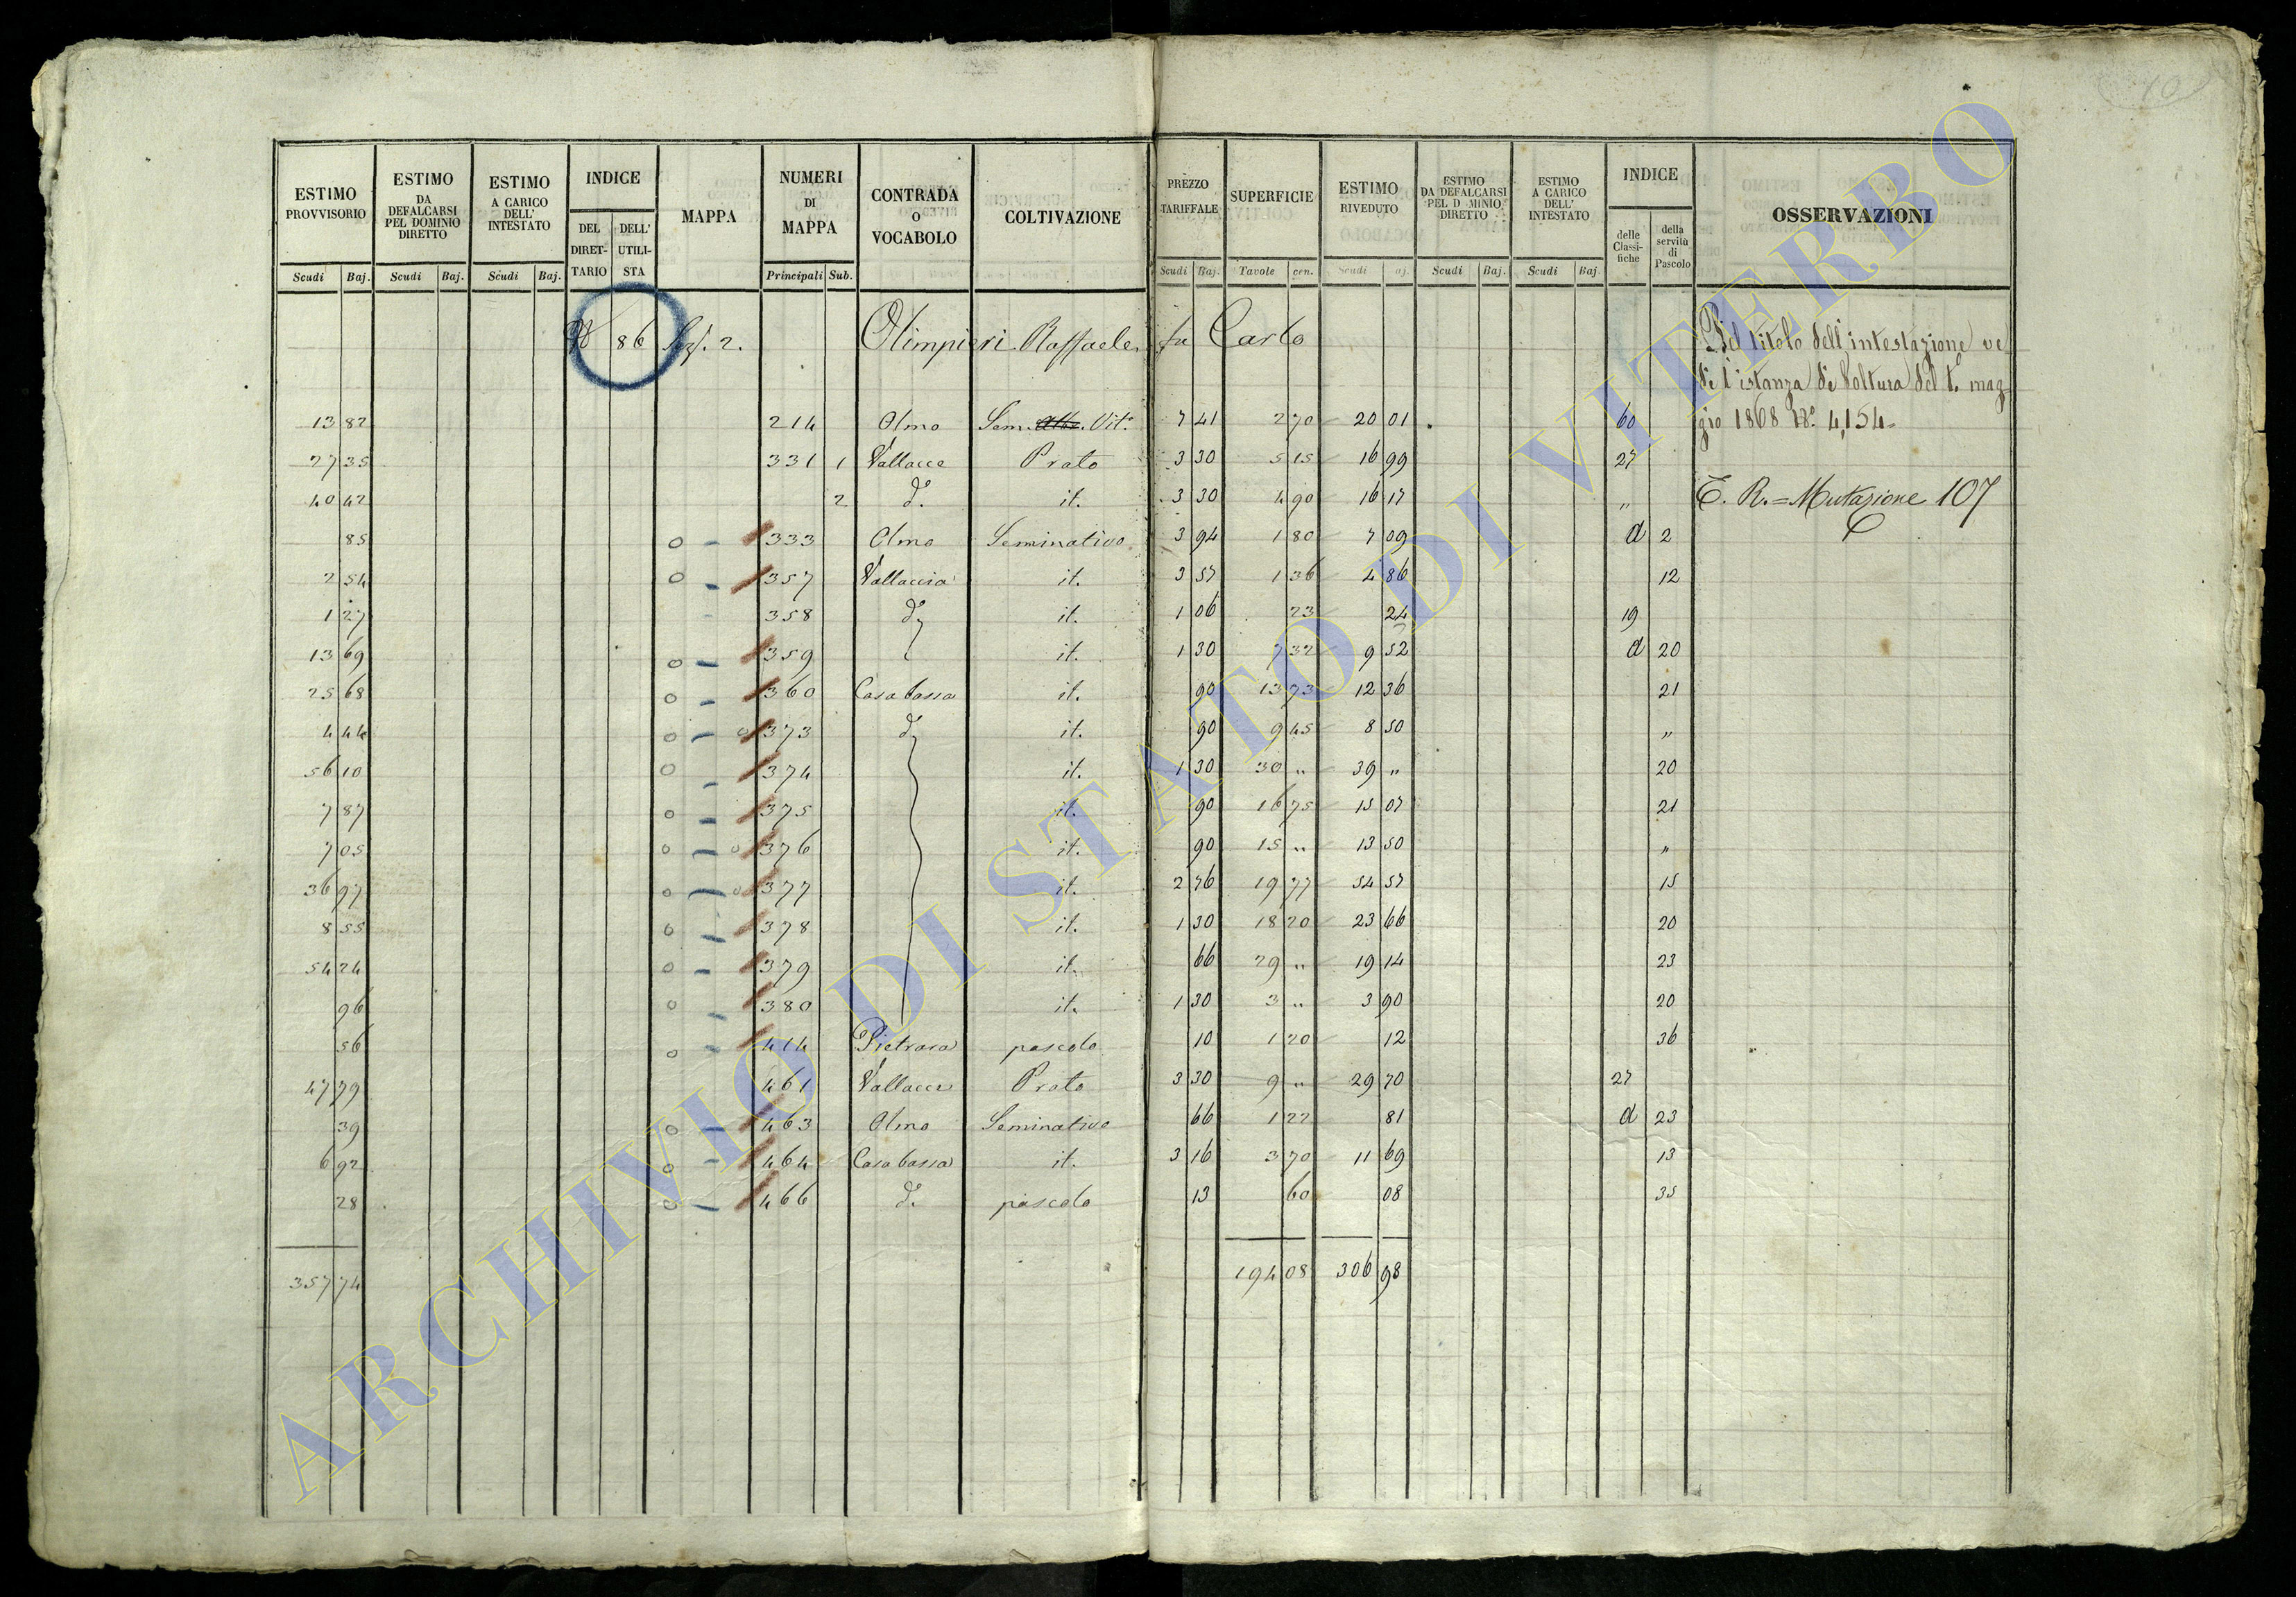 10
ESTIMO PROVVISORIO | ESTIMO DA DEFALCARSI PEL DOMINIO DIRETTO | ESTIMO A CARICO DELL' INTESTATO | INDICE | MAPPA | NUMERI DI MAPPA | CONTRADA O VOCABOLO | COLTIVAZIONE | PREZZO TARIFFALE | SUPERFICIE | ESTIMO RIVEDUTO | ESTIMO DA DEFALCARSI PEL D MINIO DIRETTO | ESTIMO A CARICO DELL' INTESTATO | INDICE | OSSERVAZIONI
DEL DIRET-TARIO | DELL' UTILI-STA | delle Classi-fiche | della servitù di Pascolo
Scudi | Baj. | Scudi | Baj. | Scudi | Baj. | Principali | Sub. | Scudi | Baj. | Tavole | cen. | Scudi | aj. | Scudi | Baj. | Scudi | Baj.
86 | 2. | Olimpieri Raffaele fu Carlo | Pel titolo dell'intestazione ve
di l'istanza di Voltura del 1.º mag
13 82 | 214 | Olmo | Sem. Vit.º | 7 41 | 2 70 | 20 01 | 60 | gio 1868 Nº. 4,154
27 35 | 331 1 | Vallacce | Prato | 3 30 | 5 15 | 16 99 | 27
40 42 | 2 | dº. | it. | 3 30 | 4 90 | 16 17 | " | E. R. = Mutazione 107
85 | 333 | Olmo | Seminativo | 3 94 | 1 80 | 7 09 | d | 2
2 54 | 357 | Vallaccia | it. | 3 57 | 1 36 | 4 86 | 12
1 27 | 358 | dº | it. | 1 06 | 23 | 24 | 19
13 69 | 359 | it. | 1 30 | 7 32 | 9 52 | d | 20
25 68 | 360 | Casa bassa | it. | 90 | 13 73 | 12 36 | 21
4 44 | 373 | dº | it. | 90 | 9 45 | 8 50 | "
56 10 | 374 | it. | 1 30 | 30 " | 39 " | 20
7 87 | 375 | it. | 90 | 16 75 | 15 07 | 21
7 05 | 376 | it. | 90 | 15 " | 13 50 | "
36 97 | 377 | it. | 2 76 | 19 77 | 54 57 | 15
8 55 | 378 | it. | 1 30 | 18 20 | 23 66 | 20
54 24 | 379 | it. | 66 | 29 " | 19 14 | 23
96 | 380 | it. | 1 30 | 3 " | 3 90 | 20
56 | 414 | Pietrara | pascolo | 10 | 1 20 | 12 | 36
47 79 | 461 | Vallacce | Prato | 3 30 | 9 " | 29 70 | 27
39 | 463 | Olmo | Seminativo | 66 | 1 22 | 81 | d | 23
6 92 | 464 | Casa bassa | it. | 3 16 | 3 70 | 11 69 | 13
28 | 466 | dº. | pascolo | 13 | 60 | 08 | 35
357 74 | 194 08 | 306 98
ARCHIVIO DI STATO DI VITERBO